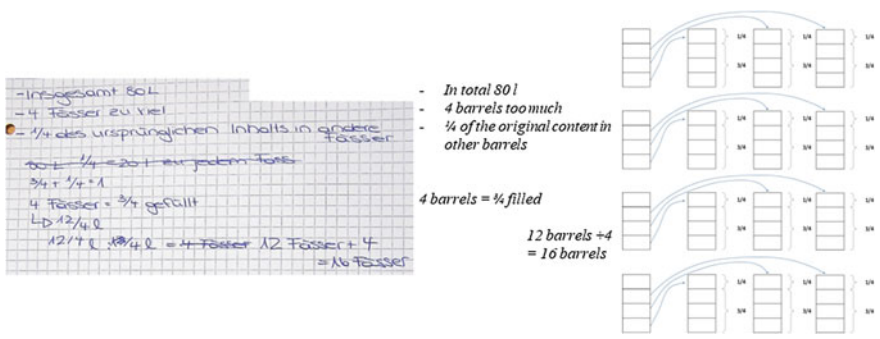 -Insgesamt 80L
-4 Fässer zu viel
-1/4 des ursprünglichen Inhalts in andere
Fässer
80 L 1/4 = 20 l zu jedem Fass
3/4 + 1/4 = 1
4 Fässer = 3/4 gefüllt
↳ 12/4 l
12/4 l : /4 l = 4 Fässer 12 Fässer + 4
= 16 Fässer
- In total 80 l
- 4 barrels too much
- ¼ of the original content in
other barrels
4 barrels = ¾ filled
12 barrels +4
= 16 barrels
1/4 1/4 1/4
3/4 3/4 3/4
1/4 1/4 1/4
3/4 3/4 3/4
1/4 1/4 1/4
3/4 3/4 3/4
1/4 1/4 1/4
3/4 3/4 3/4